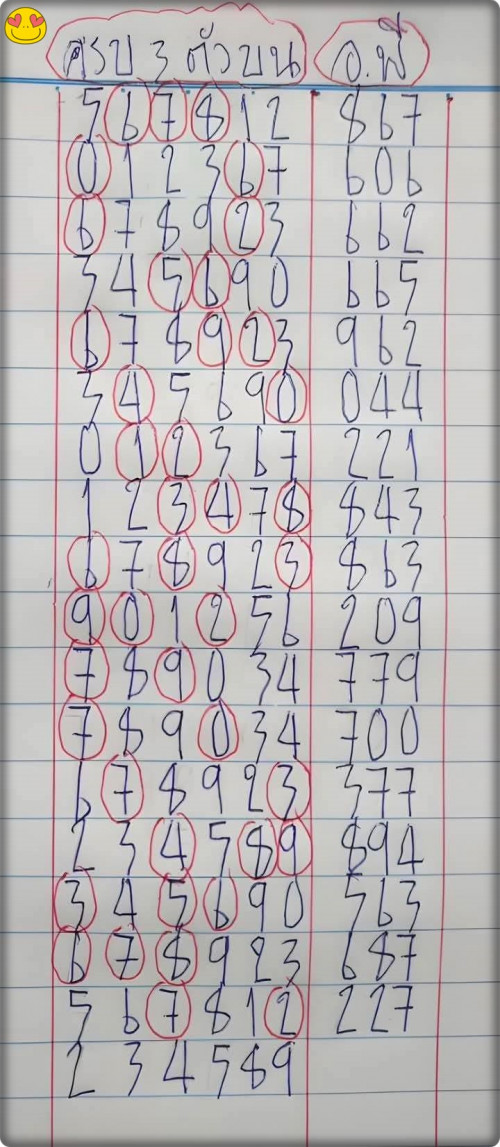 ครบ 3 ตัวบน อ.พี่
567812 867
012367 606
678923 662
345690 665
678923 962
345690 044
012367 221
123478 843
678923 863
901256 209
789034 779
789034 700
678923 377
234589 894
345690 563
678923 687
567812 227
234589